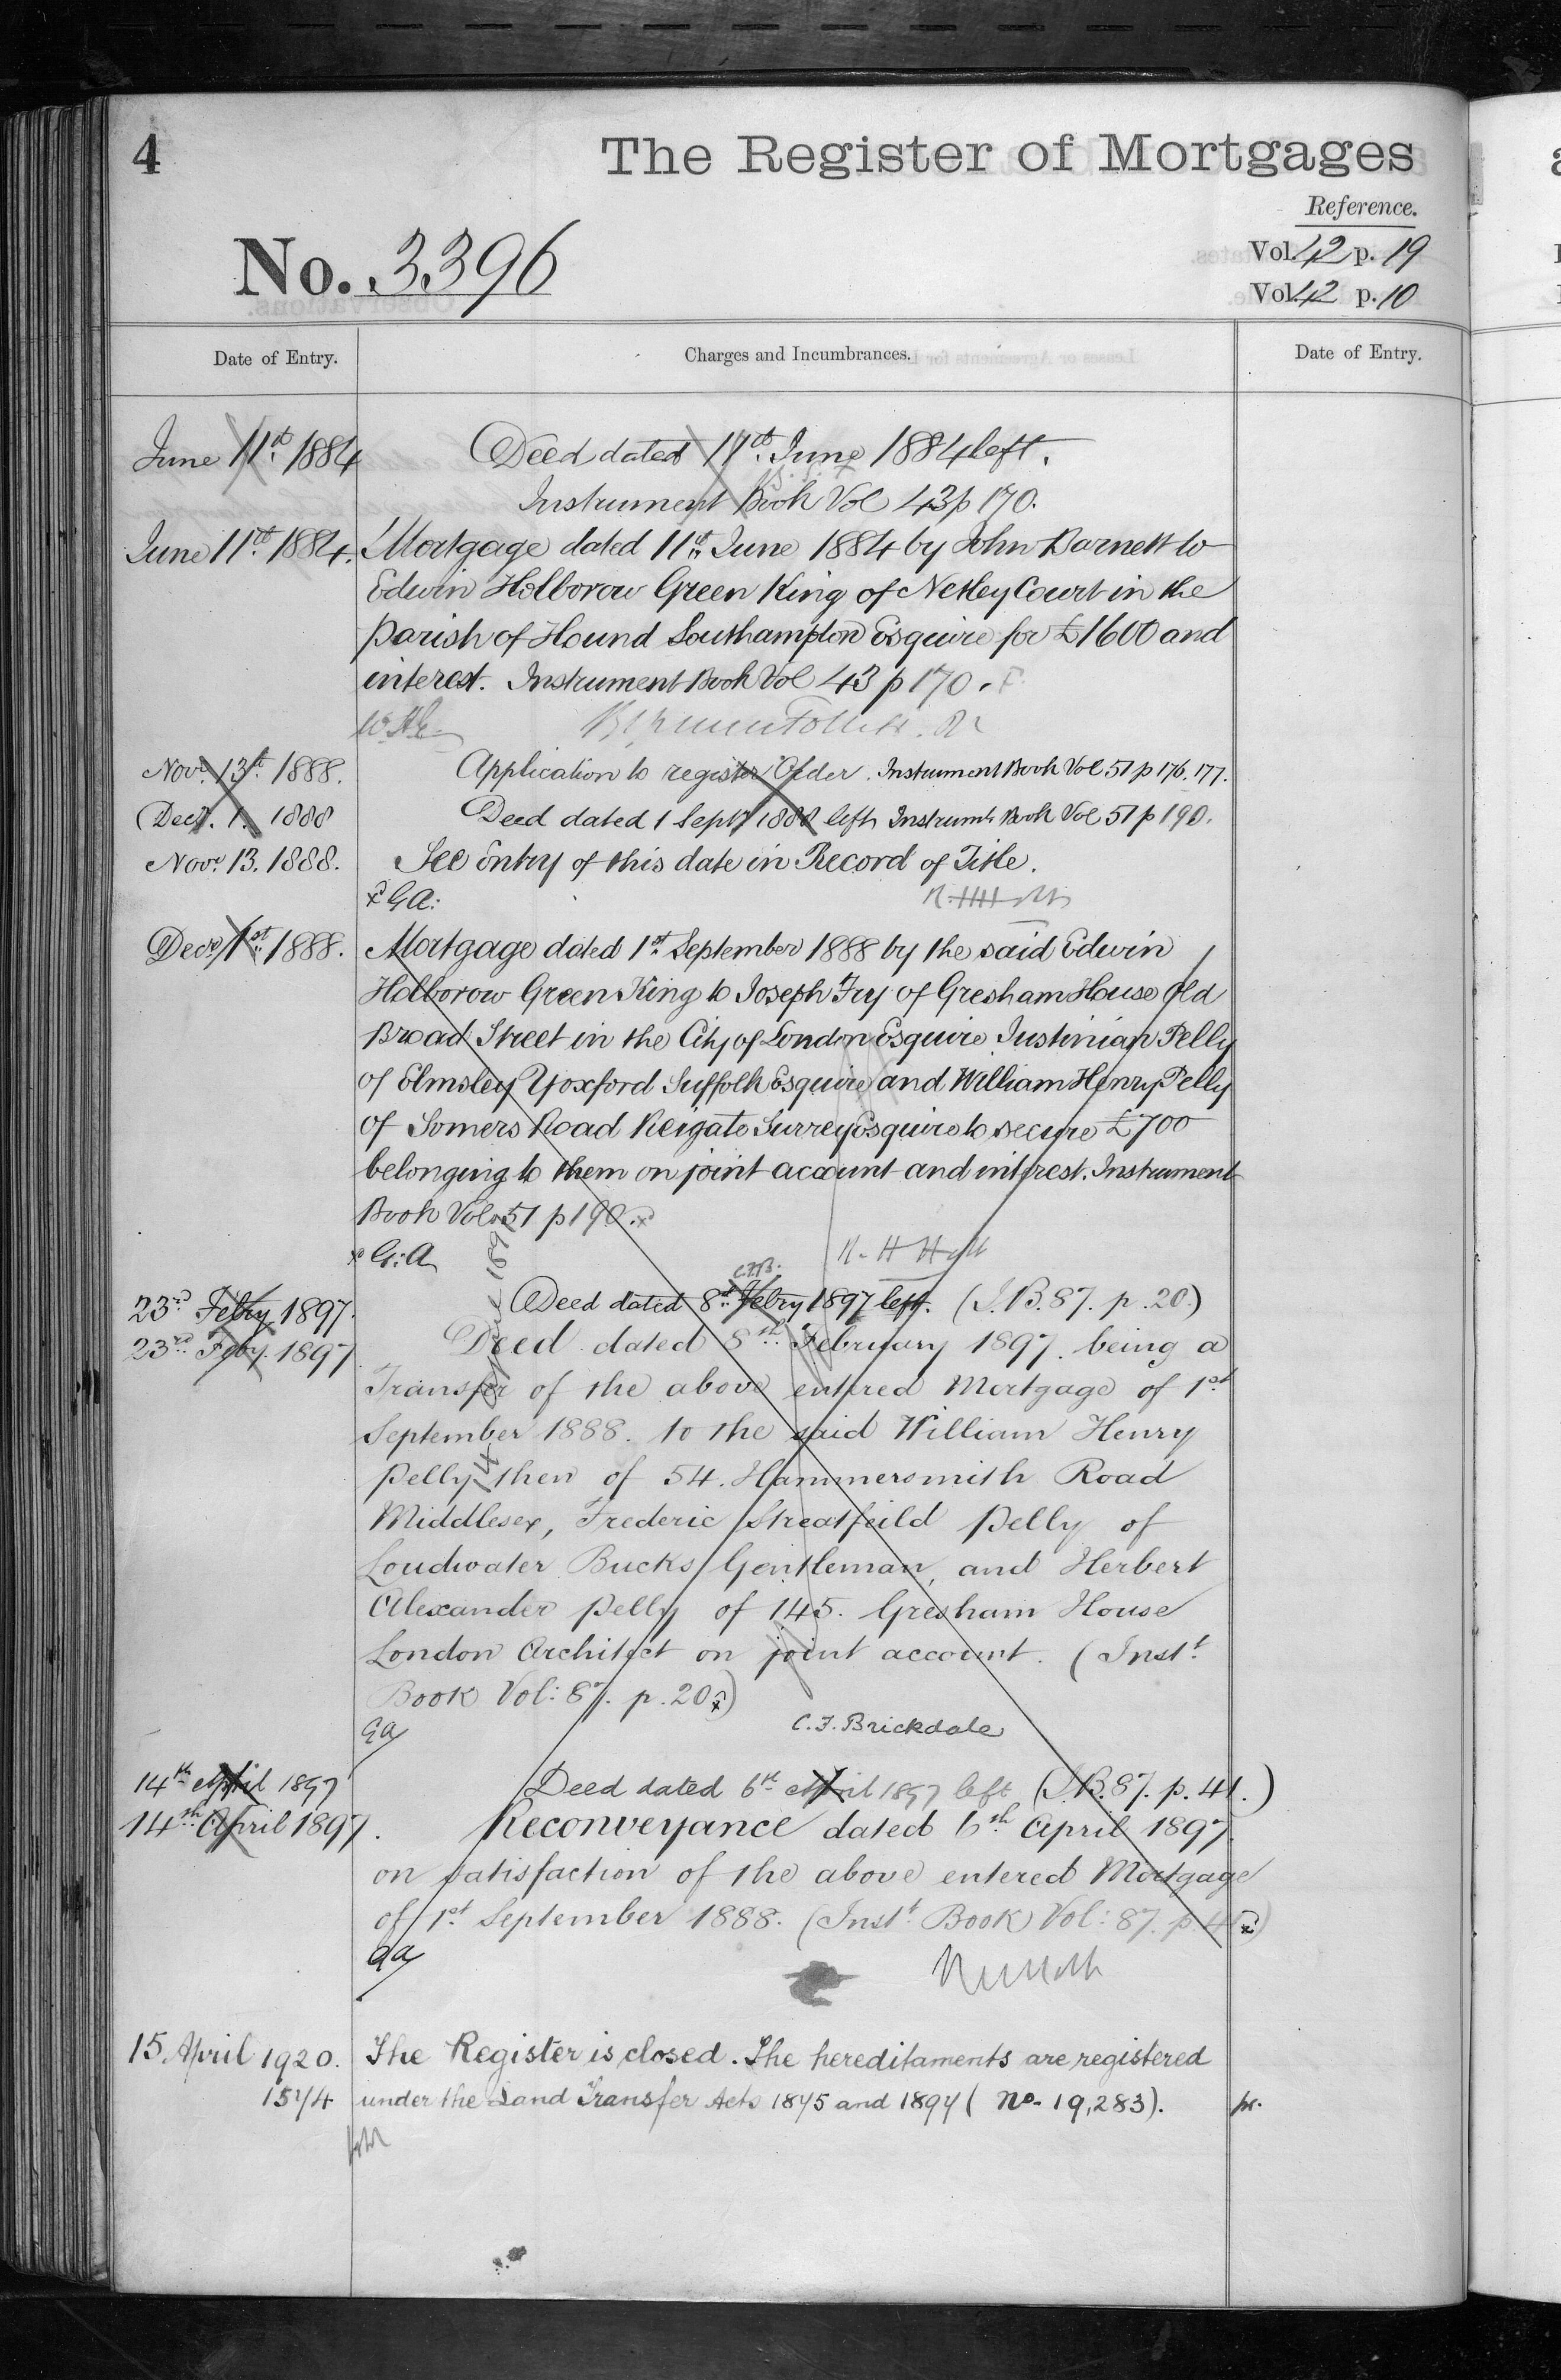 4
The Register of Mortgages
Reference.
No. 3396
Vol. 42 p. 19
Vol. 42 p. 10
Date of Entry.
Charges and Incumbrances.
Date of Entry.
June 11th 1884
Deed dated 11th June 1884 left.
Instrument Book Vol 43 p 170.
June 11th 1884.
Mortgage dated 11th June 1884 by John Barnett to
Edwin Holborow Green King of Netley Court in the
parish of Hound Southampton Esquire for £1600 and
interest. Instrument Book Vol 43 p 170.
Novr 13th 1888.
Application to register Order. Instrument Book Vol 51 p 176. 177.
Decr. 1. 1888
Deed dated 1 Sept 1888 left Instrumt Book Vol 51 p 190.
Novr 13. 1888.
See Entry of this date in Record of Title.
x GA:
R. H Holt
Decr 1st 1888.
Mortgage dated 1st September 1888 by the said Edwin
Holborow Green King to Joseph Fry of Gresham House Old
Broad Street in the City of London Esquire Justinian Pelly
of Elmsley Yoxford Suffolk Esquire and William Henry Pelly
of Somers Road Reigate Surrey Esquire to secure £700
belonging to them on joint account and interest. Instrument
Book Vol 51 p 190. x
x G:A
R. H Holt
C.F.B.
23rd Febry 1897.
Deed dated 8th Febry 1897 left. (I.B. 87. p. 20.)
23rd Feby. 1897
Deed dated 8th February 1897. being a
Transfer of the above entered Mortgage of 1st
September 1888. to the said William Henry
Pelly then of 54. Hammersmith Road
Middlesex, Frederic Streatfeild Pelly of
Loudwater Bucks Gentleman, and Herbert
Alexander Pelly of 145. Gresham House
London Architect on joint account. (Instt
Book Vol: 87. p. 20 x)
GA
C. F. Brickdale
14th April 1897
Deed dated 6th April 1897 left (I.B. 87. p. 41.)
14th April 1897.
Reconveyance dated 6th April 1897
on satisfaction of the above entered Mortgage
of 1st September 1888. (Instt Book Vol: 87. p. 41 x)
GA
15 April 1920.
The Register is closed. The hereditaments are registered
15 1/4
under the Land Transfer Acts 1875 and 1897 ( No. 19,283).